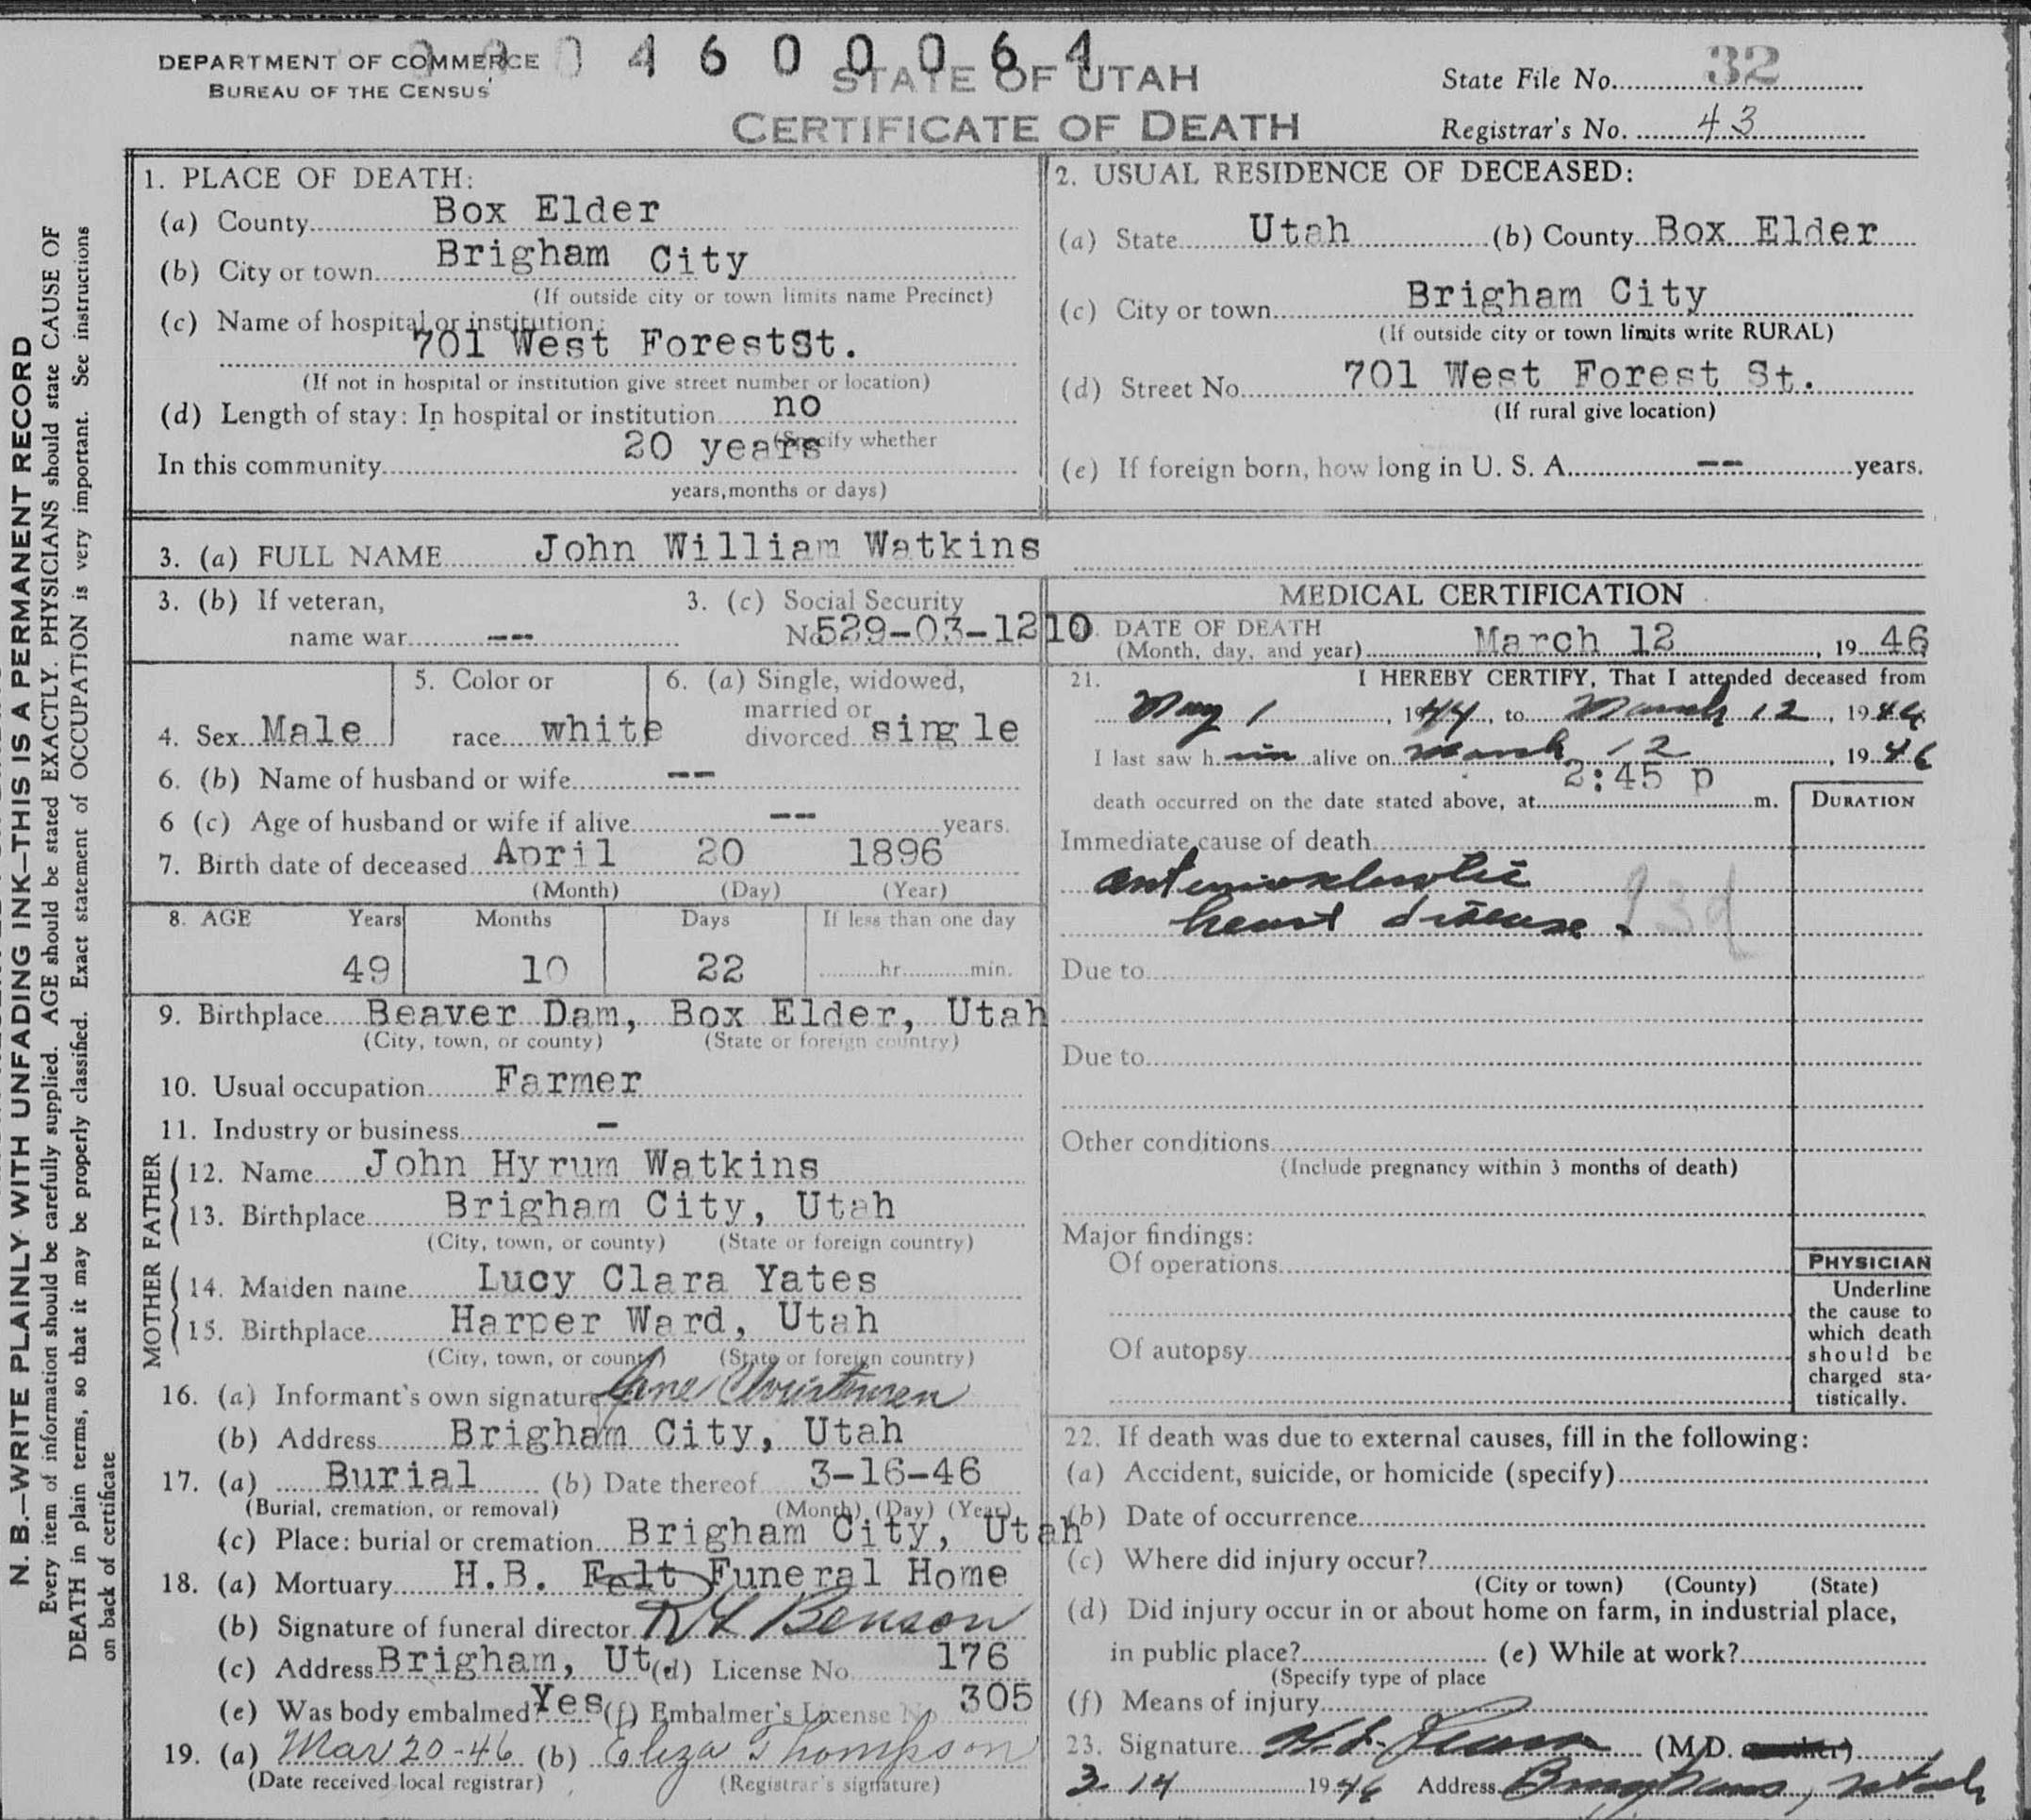 DEPARTMENT OF COMMERCE
BUREAU OF THE CENSUS
4600064
STATE OF UTAH
CERTIFICATE OF DEATH
State File No. 32
Registrar's No. 43
N. B.—WRITE PLAINLY WITH UNFADING INK—THIS IS A PERMANENT RECORD
Every item of information should be carefully supplied. AGE should be stated EXACTLY. PHYSICIANS should state CAUSE OF
DEATH in plain terms, so that it may be properly classified. Exact statement of OCCUPATION is very important. See instructions
on back of certificate
1. PLACE OF DEATH:
(a) County Box Elder
(b) City or town Brigham City
(If outside city or town limits name Precinct)
(c) Name of hospital or institution:
701 West ForestSt.
(If not in hospital or institution give street number or location)
(d) Length of stay: In hospital or institution no
(Specify whether
In this community 20 years
years, months or days)
2. USUAL RESIDENCE OF DECEASED:
(a) State Utah (b) County Box Elder
(c) City or town Brigham City
(If outside city or town limits write RURAL)
(d) Street No. 701 West Forest St.
(If rural give location)
(e) If foreign born, how long in U. S. A. -- years.
3. (a) FULL NAME John William Watkins
3. (b) If veteran,
name war --
3. (c) Social Security
No. 529-03-1210
4. Sex Male
5. Color or
race white
6. (a) Single, widowed,
married or
divorced single
6. (b) Name of husband or wife --
6 (c) Age of husband or wife if alive -- years.
7. Birth date of deceased April 20 1896
(Month) (Day) (Year)
8. AGE Years Months Days If less than one day
49 10 22 hr. min.
9. Birthplace Beaver Dam, Box Elder, Utah
(City, town, or county) (State or foreign country)
10. Usual occupation Farmer
11. Industry or business -
FATHER
12. Name John Hyrum Watkins
13. Birthplace Brigham City, Utah
(City, town, or county) (State or foreign country)
MOTHER
14. Maiden name Lucy Clara Yates
15. Birthplace Harper Ward, Utah
(City, town, or county) (State or foreign country)
16. (a) Informant's own signature Jane Christensen
(b) Address Brigham City, Utah
17. (a) Burial (b) Date thereof 3-16-46
(Burial, cremation, or removal) (Month) (Day) (Year)
(c) Place: burial or cremation Brigham City, Utah
18. (a) Mortuary H.B. Felt Funeral Home
(b) Signature of funeral director Benson
(c) Address Brigham, Ut. (d) License No. 176
(e) Was body embalmed? Yes (f) Embalmer's License No. 305
19. (a) Mar 20-46 (b) Eliza Thompson
(Date received local registrar) (Registrar's signature)
MEDICAL CERTIFICATION
DATE OF DEATH
(Month, day, and year) March 12, 1946
21. I HEREBY CERTIFY, That I attended deceased from
May 1, 1944, to March 12, 1946
I last saw him alive on March 12, 1946
death occurred on the date stated above, at 2:45 p m.
DURATION
Immediate cause of death
arteriosclerotic
heart disease.
Due to
Due to
Other conditions
(Include pregnancy within 3 months of death)
Major findings:
Of operations
Of autopsy
PHYSICIAN
Underline
the cause to
which death
should be
charged sta-
tistically.
22. If death was due to external causes, fill in the following:
(a) Accident, suicide, or homicide (specify)
(b) Date of occurrence
(c) Where did injury occur?
(City or town) (County) (State)
(d) Did injury occur in or about home on farm, in industrial place,
in public place? (e) While at work?
(Specify type of place
(f) Means of injury
23. Signature (M.D.
3-14 1946 Address Brigham, Utah